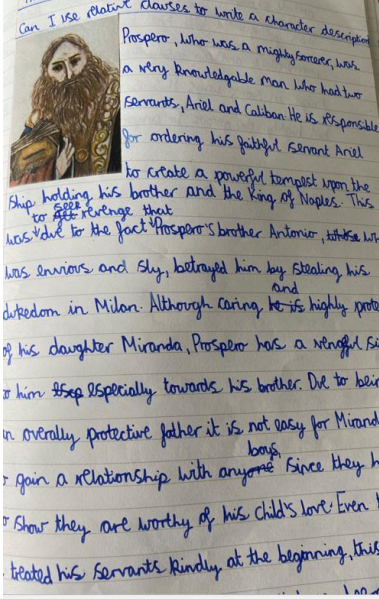 Can I use relative clauses to write a character description
Prospero, who was a mighty sorcerer, was
a very knowledgable man who had two
servants, Ariel and Caliban. He is responsible
for ordering his faithful servant Ariel
to create a powerful tempest upon the
ship holding his brother and the King of Naples. This
to seek revenge that
was due to the fact Prospero's brother Antonio, whose wh
was envious and sly, betrayed him by stealing his
and
dukedom in Milan. Although caring he is highly prote
of his daughter Miranda, Prospero has a vengful si
o him especially towards his brother. Due to bein
n overally protective father it is not easy for Mirand
boys,
gain a relationship with anyone since they h
o show they are worthy of his child's love. Even
treated his servants kindly at the beginning, this